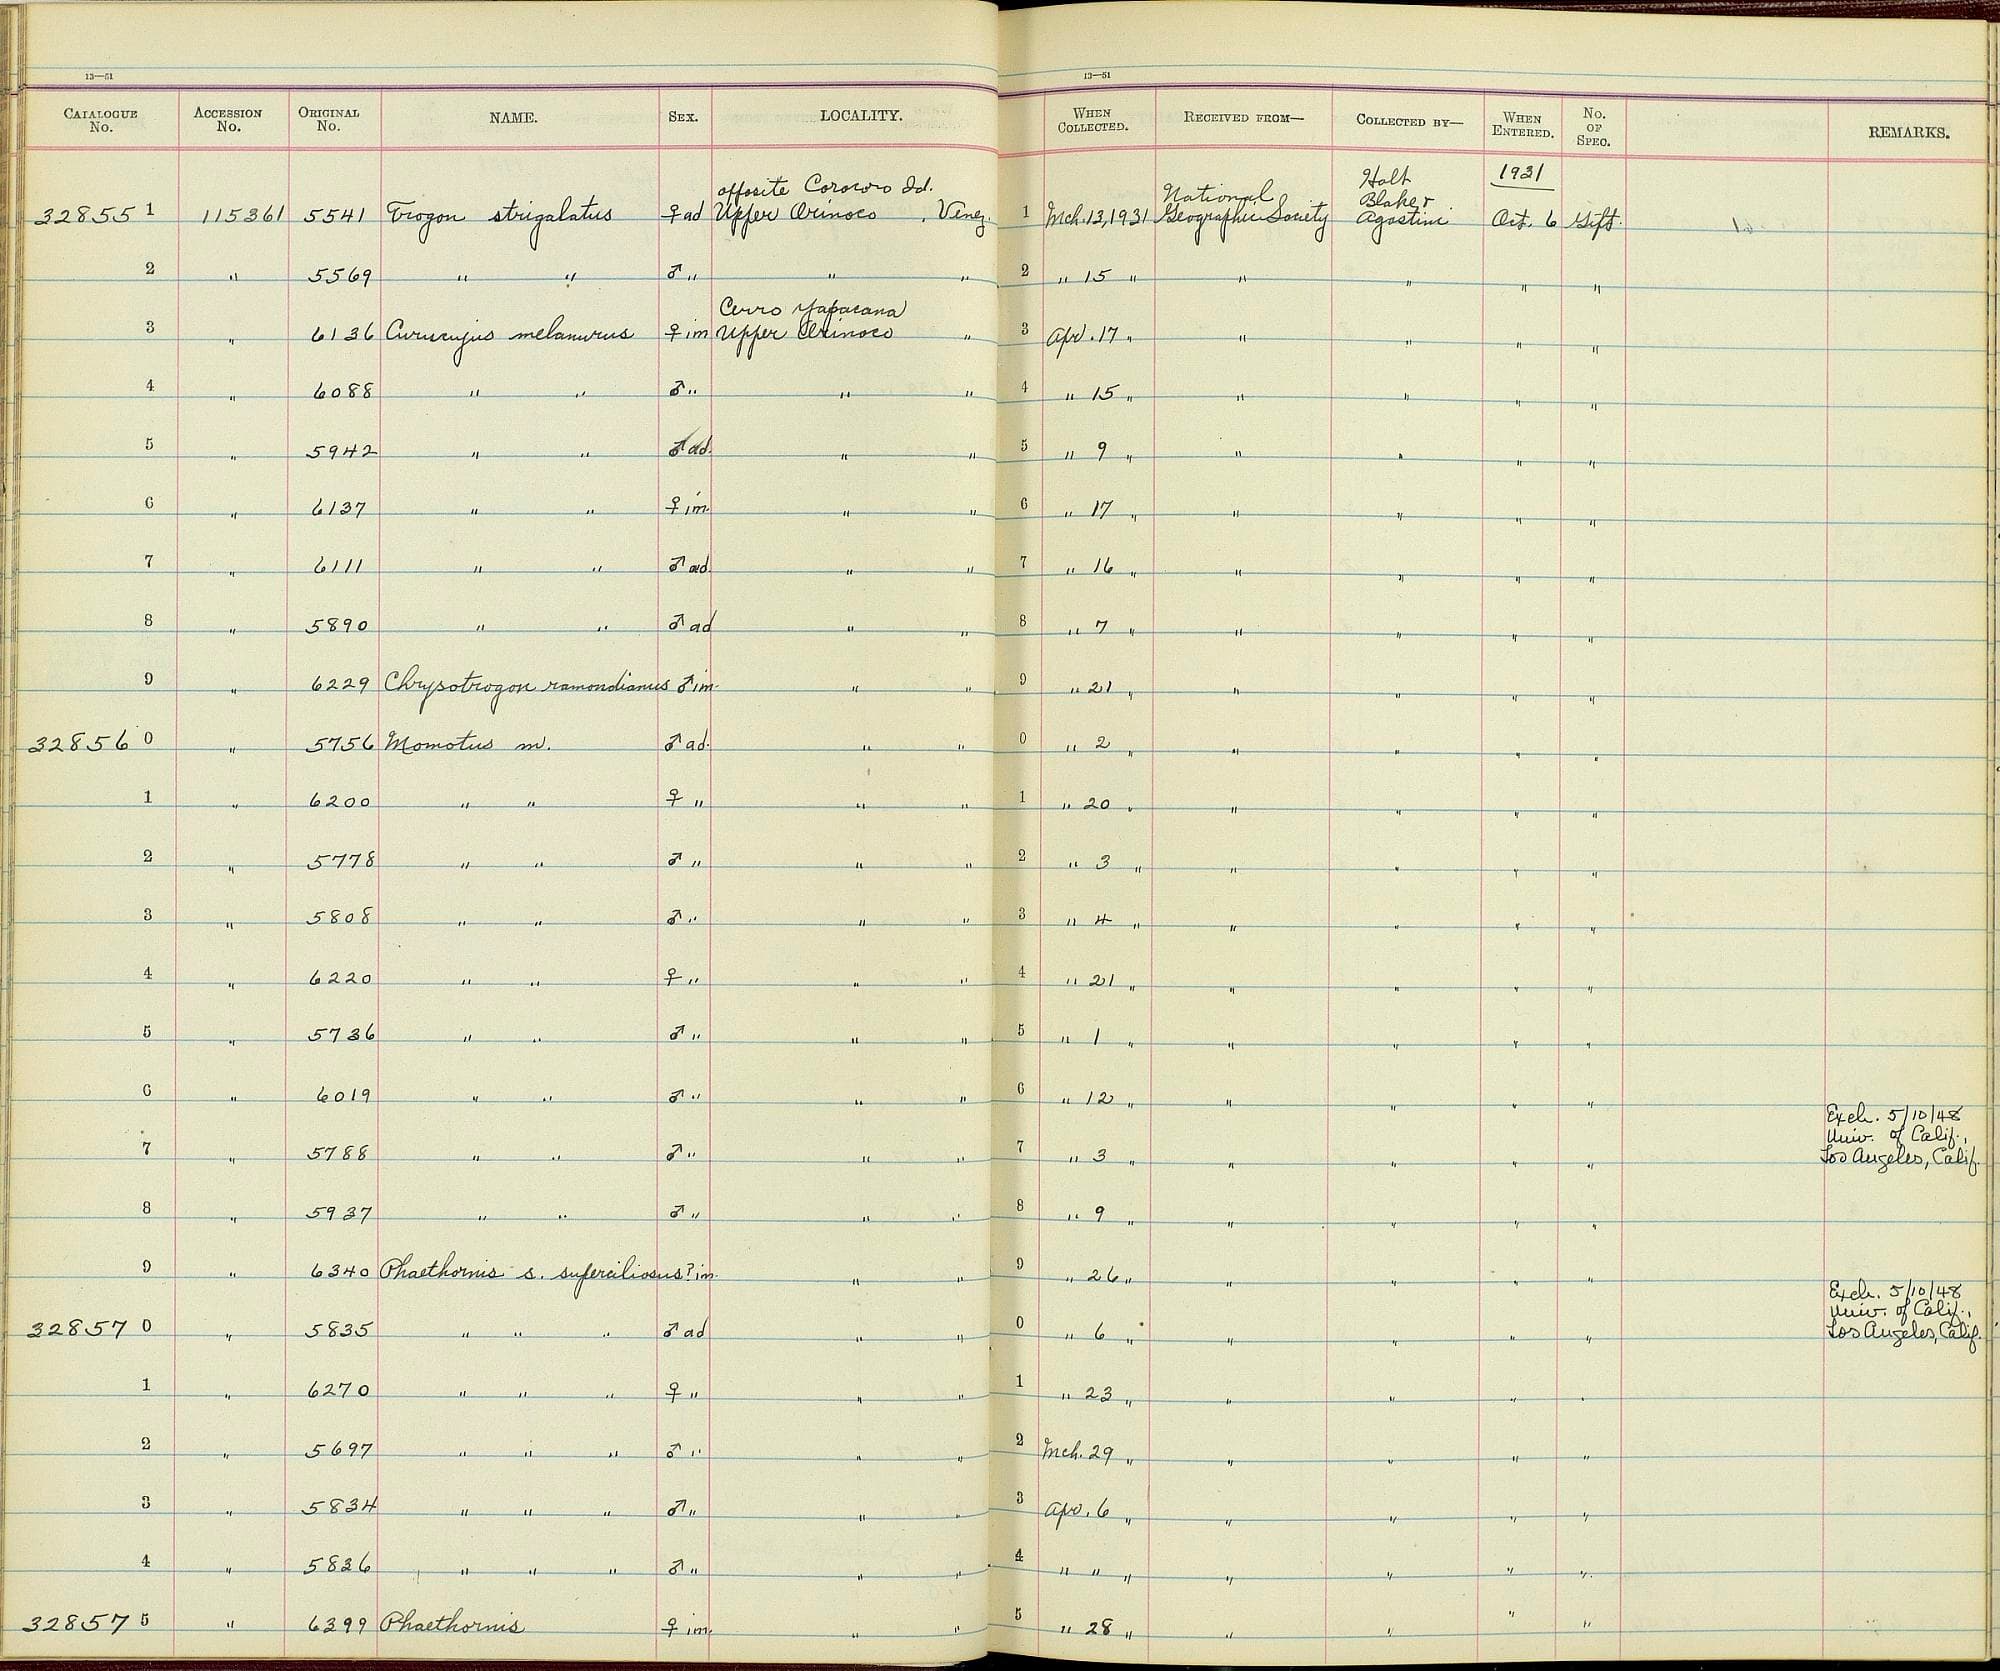 13—51
13—51
CATALOGUE No. ACCESSION No. ORIGINAL No. NAME. SEX. LOCALITY. WHEN COLLECTED. RECEIVED FROM— COLLECTED BY— WHEN ENTERED. No. OF SPEC. REMARKS.
opposite Corocoro Id. National Holt Blake & 1931
328551 115361 5541 Trogon strigalatus ♀ ad Upper Orinoco, Venez. 1 Mch. 13, 1931 Geographic Society Agostini Oct. 6 Gift.
2 " 5569 " " ♂ " " " 2 " 15 " " " " "
Cerro Yapacana
3 " 6136 Curucujus melanurus ♀ im Upper Orinoco " 3 Apr. 17 " " " " "
4 " 6088 " " ♂ " " " 4 " 15 " " " " "
5 " 5942 " " ♂ ad. " " 5 " 9 " " " " "
6 " 6137 " " ♀ im. " " 6 " 17 " " " " "
7 " 6111 " " ♂ ad. " " 7 " 16 " " " " "
8 " 5890 " " ♂ ad " " 8 " 7 " " " " "
9 " 6229 Chrysotrogon ramondianus ♂ im. " " 9 " 21 " " " " "
32856 0 " 5756 Momotus m. ♂ ad. " " 0 " 2 " " " " "
1 " 6200 " " ♀ " " " 1 " 20 " " " " "
2 " 5778 " " ♂ " " " 2 " 3 " " " " "
3 " 5808 " " ♂ " " " 3 " 4 " " " " "
4 " 6220 " " ♀ " " " 4 " 21 " " " " "
5 " 5736 " " ♂ " " " 5 " 1 " " " " "
6 " 6019 " " ♂ " " " 6 " 12 " " " " "
Exch. 5/10/48
Univ. of Calif.,
7 " 5788 " " ♂ " " " 7 " 3 " " " " " Los Angeles, Calif.
8 " 5937 " " ♂ " " " 8 " 9 " " " " "
9 " 6340 Phaethornis s. superciliosus ? im. " " 9 " 26 " " " " "
Exch. 5/10/48
Univ. of Calif.,
32857 0 " 5835 " " " ♂ ad " " 0 " 6 " " " " " Los Angeles, Calif.
1 " 6270 " " " ♀ " " " 1 " 23 " " " " "
2 " 5697 " " " ♂ " " " 2 Mch. 29 " " " " "
3 " 5834 " " " ♂ " " " 3 Apr. 6 " " " " "
4 " 5826 " " " ♂ " " " 4 " " " " " " "
32857 5 " 6399 Phaethornis ♀ im. " " 5 " 28 " " " " "